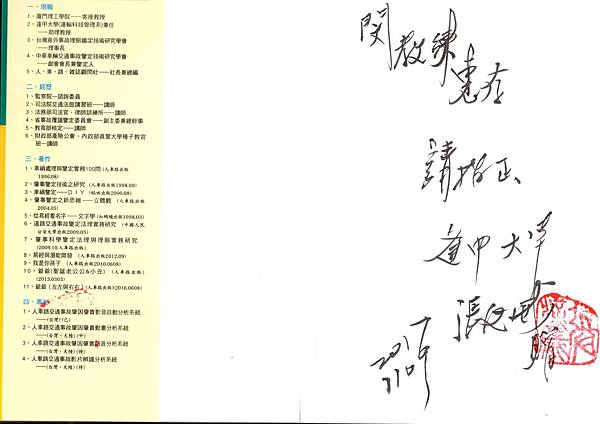 一、現職
1、廈門理工學院——客座教授
2、逢甲大學(運輸科技管理系)兼任
——助理教授
3、台灣意外事故理賠鑑定技術研究學會
——理事長
4、中華車輛交通事故鑒定技術研究學會
——創會會長兼鑒定人
5、人‧車‧路‧雜誌顧問社——社長兼總編
二、經歷
1、監察院—諮詢委員
2、司法院交通法庭講習班——講師
3、法務部司法官、律師訓練所——講師
4、省事故覆議鑒定委員會——副主委兼總幹事
5、教育部核定——講師
6、財政部產險公會、內政部員警大學種子教官
班—講師
三、著作
1、車禍處理與鑒定實務100問(人車路出版
1996.08)
2、肇事鑒定技術之研究 (人車路出版1998.09)
3、車禍鑒定——DIY
4、肇事鑒定之新思維——立體觀 (人車路出版
2004.05)
5、從易經看名字——文字學
6、道路交通事故鑒定法理實務研究 (中國人民
公安大學出版2009.05)
7、肇事科學鑒定法理與理賠實務研究
(2009.10人車路出版)
8、易經與潛能開發 (人車路出版2012.09)
9、我是你孫子 (人車路出版2010.0608)
10、爺爺(聖誕老公公&小丑) (人車路出版
2013.0303)
11、爺爺(左左與右右)(人車路出版)(2016.0608)
四、專利
1、人車路交通事故肇因肇責影音自動分析系統
——(台灣)(己)
2、人車路交通事故肇因肇責動畫分析系統
——(台灣‧大陸)(中)
3、人車路交通事故肇因肇責語音分析系統
——(台灣‧大陸)(待)
4、人車路交通事故影片辨識分析系統
——(台灣‧大陸)(待)
閔教練惠存
請指正
逢甲大學
張